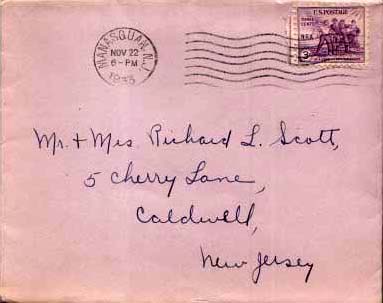 MANASQUAN, N.J.
NOV 22
6-PM
1933
U.S. POSTAGE
THREE CENTS
N.R.A.
3
Mr. + Mrs Richard L. Scott,
5 Cherry Lane,
Caldwell,
New Jersey